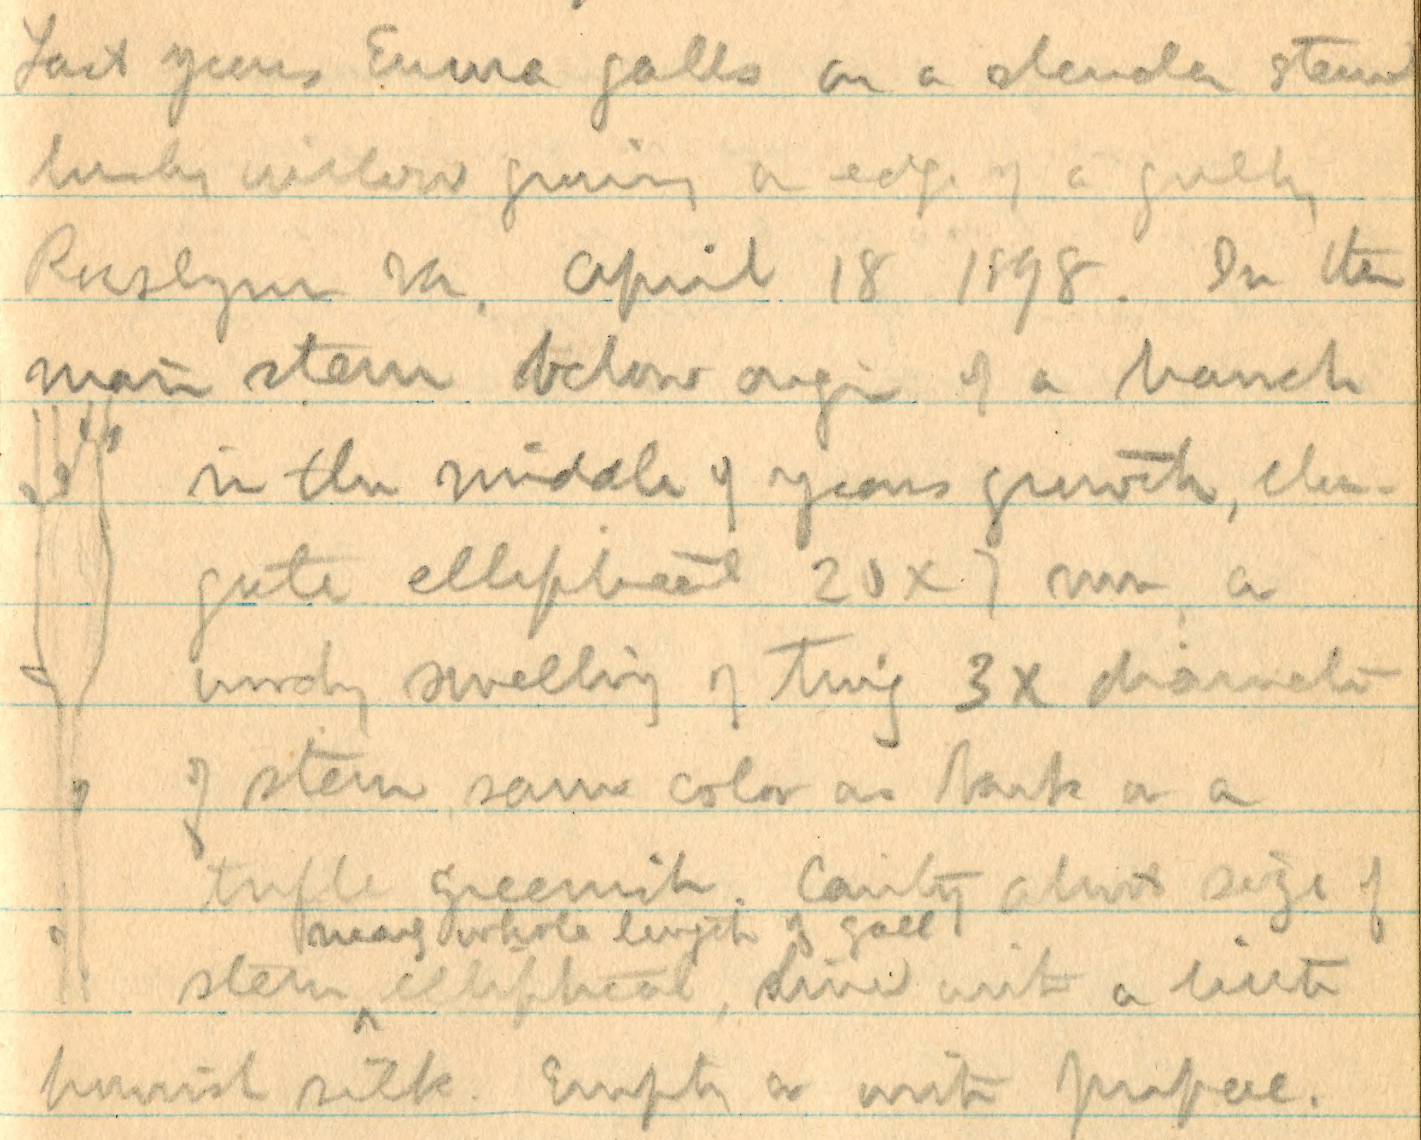 Last years Euura galls on a slender stem
bushy willow growing on edge of a gully
Rosslyn Va. April 18 1898. In the
main stem below origin of a branch
in the middle of years growth, elon-
gate elliptical 20 x 7 mm, a
woody swelling of twig 3 x diameter
of stem same color as bark or a
trifle greenish. Cavity almost size of
nearly whole length of gall
stem elliptical, lined with a little
brownish silk. Empty or with propeae.